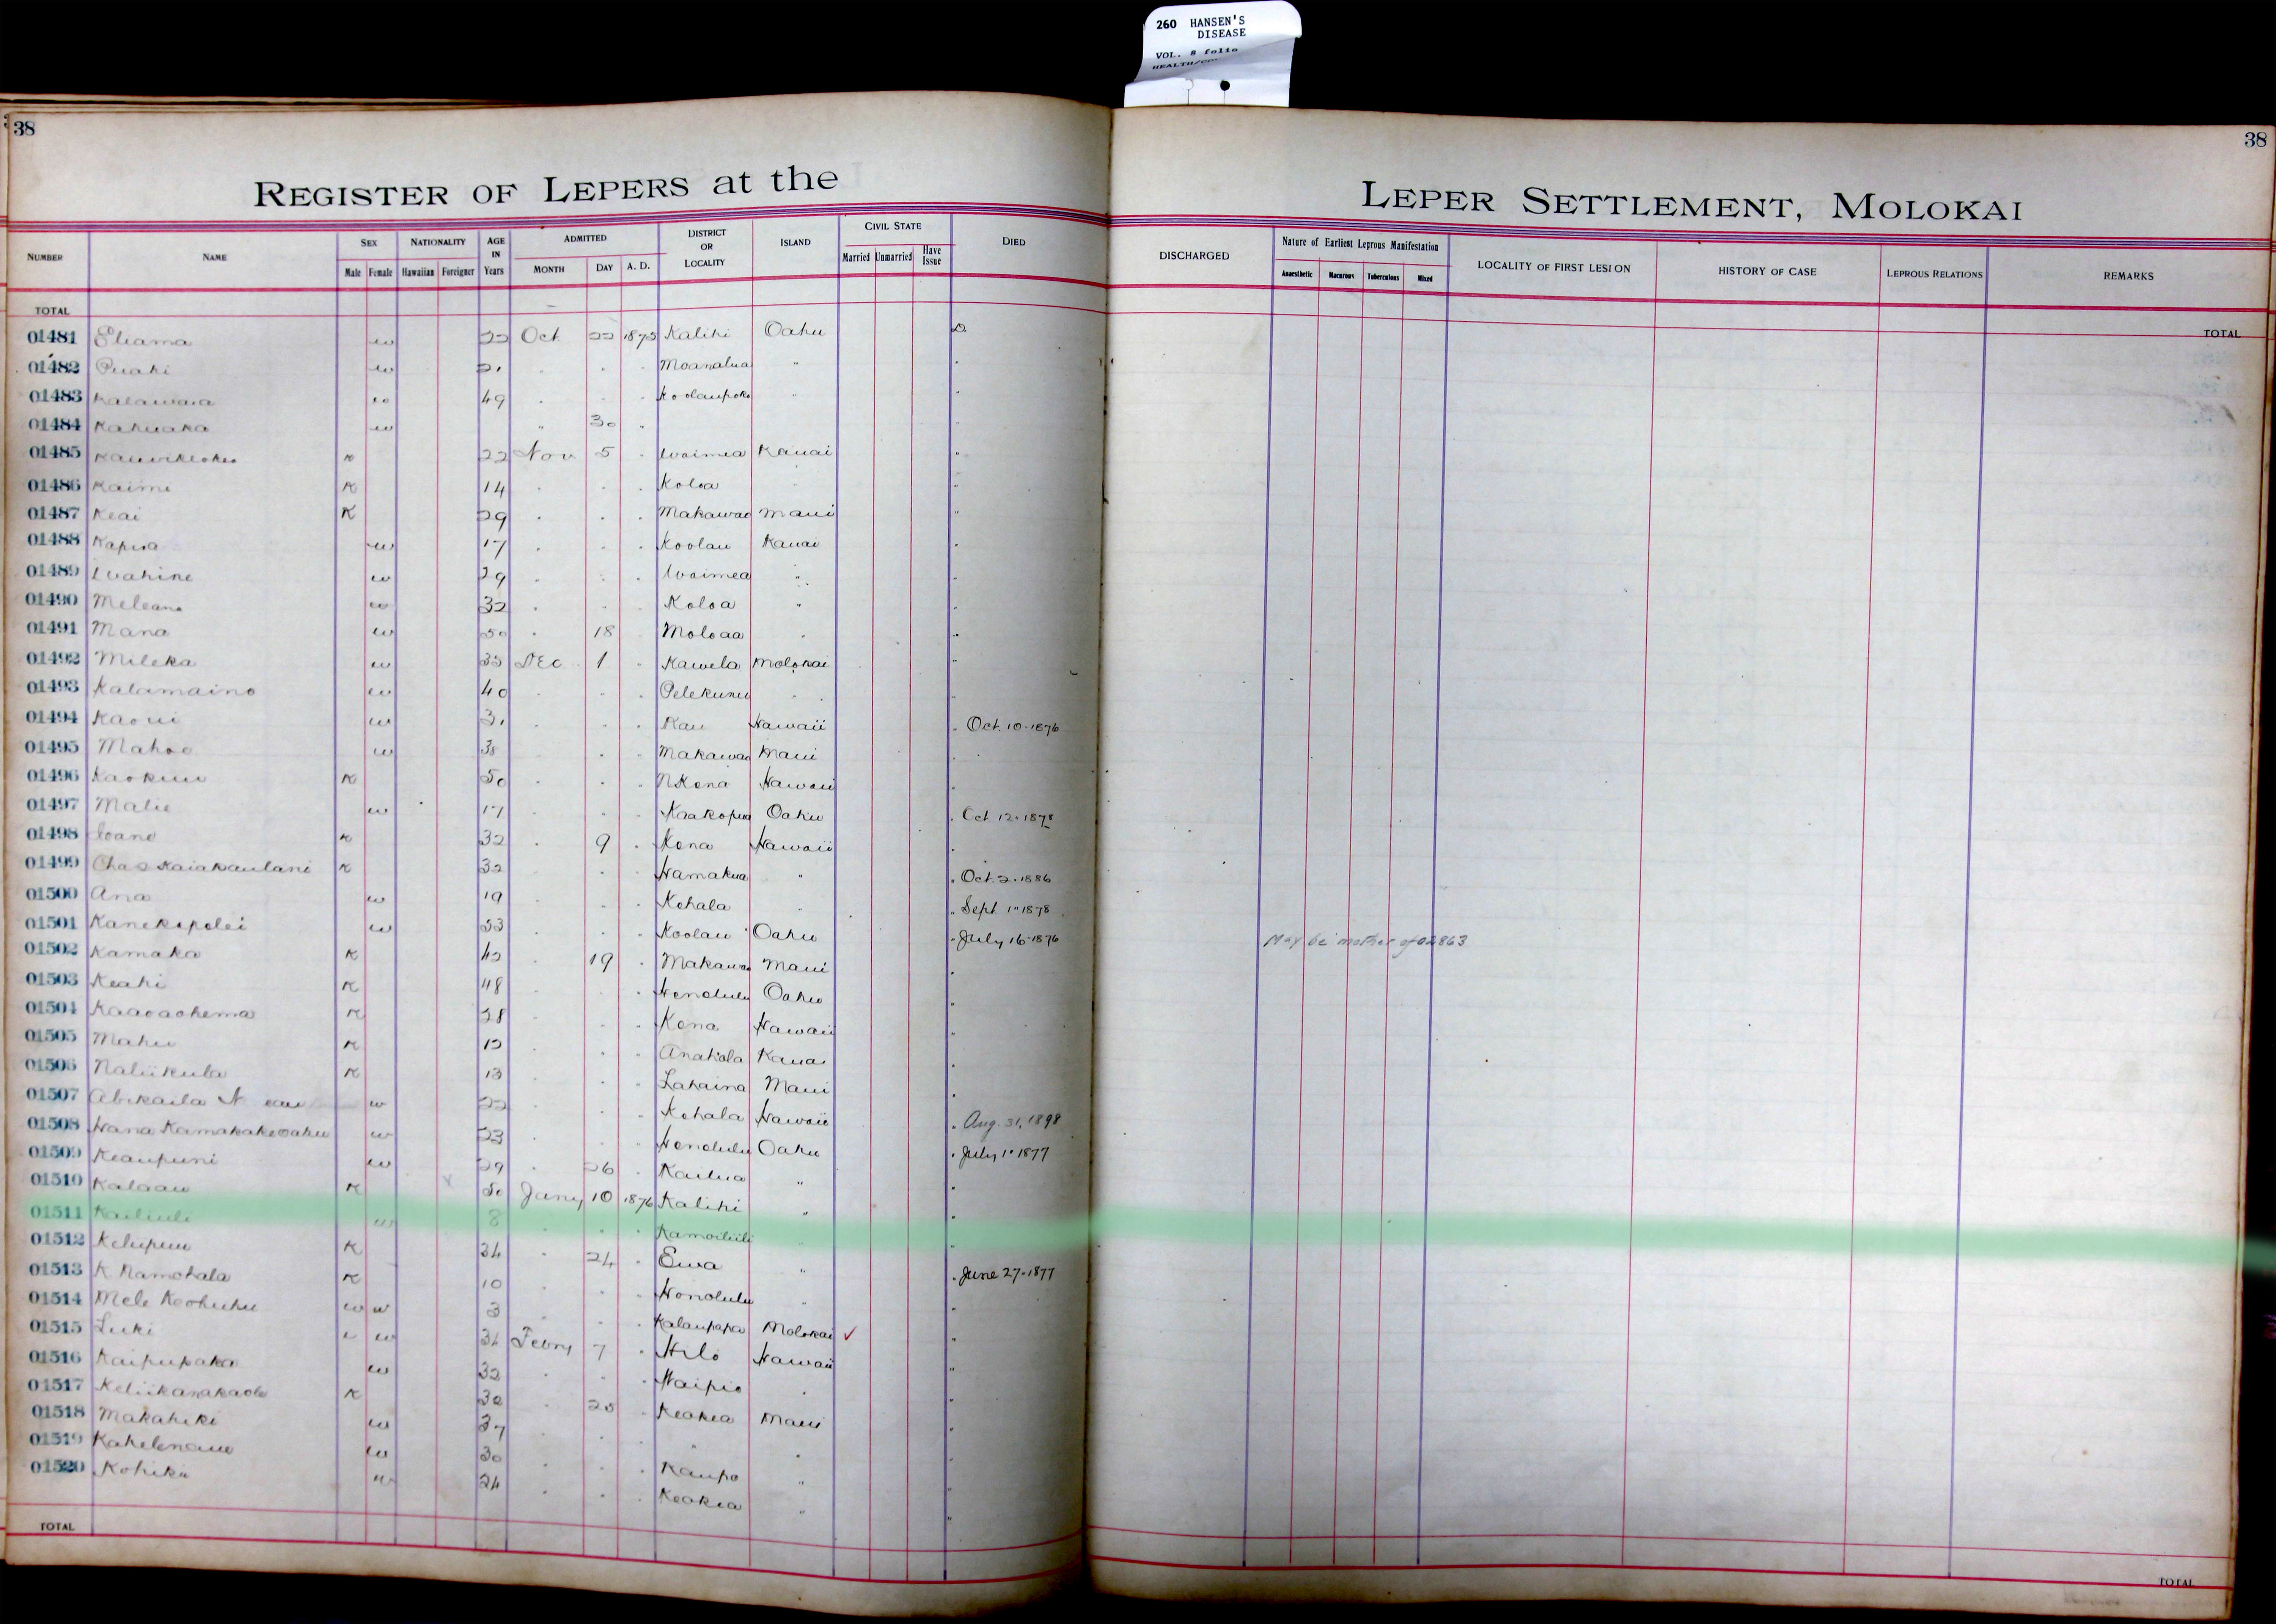 260 HANSEN'S
DISEASE
VOL. 8 folio
38
38
REGISTER OF LEPERS at the
LEPER SETTLEMENT, MOLOKAI
NUMBER NAME SEX Male Female NATIONALITY Hawaiian Foreigner AGE IN Years ADMITTED MONTH DAY A. D. DISTRICT OR LOCALITY ISLAND CIVIL STATE Married Unmarried Have Issue DIED
DISCHARGED Nature of Earliest Leprous Manifestation Anaesthetic Macurous Tuberculous Mixed LOCALITY OF FIRST LESION HISTORY OF CASE LEPROUS RELATIONS REMARKS
TOTAL
TOTAL
01481 Eliama w 22 Oct 22 1875 Kalihi Oahu D
01482 Puahi w 21 . . . Moanalua "
01483 Kalawaia w 49 . . . Koolaupoko "
01484 Kahuaka w " 30 "
01485 K 22 Nov 5 . Waimea Kauai "
01486 Kaimi K 14 . . . Koloa "
01487 Keai K 29 . . . Makawao Maui "
01488 w 17 . . . Koolau Kauai "
01489 Wahine w 29 . . . Waimea " "
01490 Meleana w 32 . . . Koloa " "
01491 Mana w 50 . 18 . Moloaa " "
01492 Mileka w 35 Dec 1 " Kawela Molokai "
01493 Kalamaino w 40 . . . Pelekunu " "
01494 Kaoui w 31 . . . Kau Hawaii " Oct. 10. 1876
01495 Mahoe w 38 . . Makawao Maui "
01496 Kaokuu K 50 . . . N Kona Hawaii "
01497 Malie w 17 . . Kaakopua Oahu " Oct 12. 1878
01498 Ioane K 32 . 9 . Kona Hawaii "
01499 Chas Kaiakaulani K 32 . . . Hamakua " " Oct. 2. 1886
01500 Ana w 19 . . . Kohala " " Sept. 1" 1878
01501 Kanekapolei w 53 . . . Koolau Oahu " July 16 - 1876 May be mother of 02863
01502 Kamaka K 42 . 19 . Makawao Maui "
01503 Keahi K 48 . . . Honolulu Oahu "
01504 Kaaoaohema K 28 . . . Kona Hawaii "
01505 Mahu K 12 . . . Anahola Kauai "
01506 Naliikula K 13 . . . Lahaina Maui "
01507 Abikaila N w 22 . . . Kohala Hawaii " Aug. 31, 1898
01508 Hana Kamakakeoahu w 23 . . . Honolulu Oahu " July 1" 1877
01509 Keaupuni w 29 . 26 . Kailua " "
01510 Kalaau K 50 Jany 10 1876 Kalihi " "
01511 Kailiuli w 8 . . . Kamoiliili " "
01512 Keliipuu K 34 . 24 . Ewa " " June 27. 1877
01513 K Namohala K 10 . . . Honolulu " "
01514 Mele Keohuhu w w 3 . . . Kalaupapa Molokai ✓ "
01515 Luki w 34 Febry 7 . Hilo Hawaii "
01516 Kaipupaka w 32 . . . Waipio " "
01517 Keliikanakaole K 30 . 25 . Keokea Maui "
01518 Makahiki w 37 . . . " " "
01519 w 30 . . . Kaupo " "
01520 w 24 . . . Keokea " "
TOTAL
TOTAL